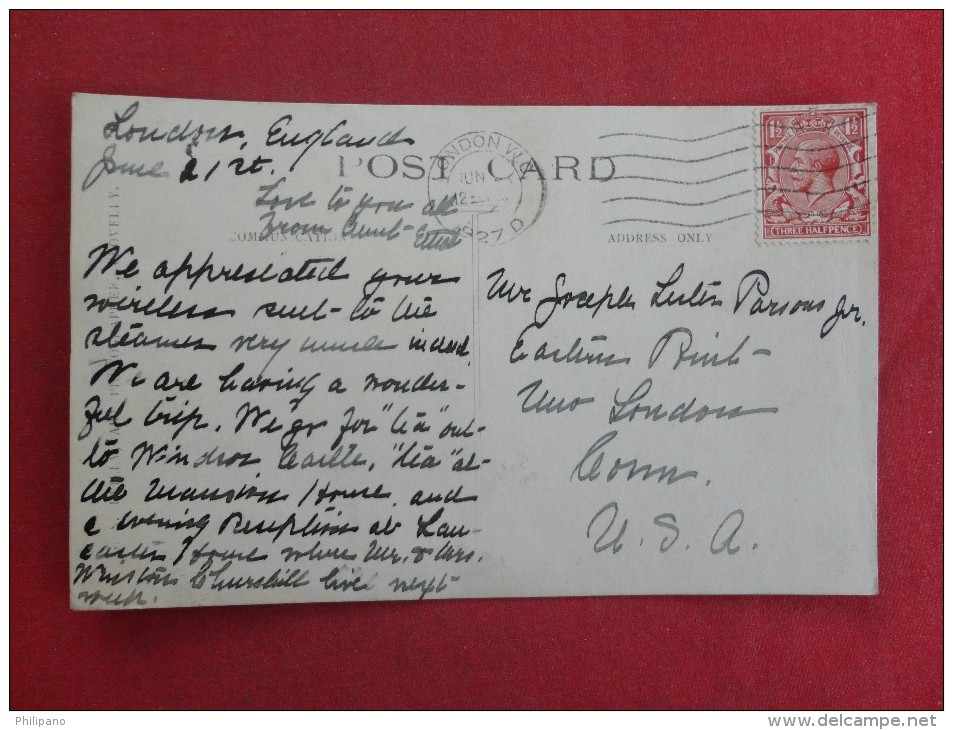 London, England
June 21st.
Love to you all
From Aunt Ethel
POST CARD
COMMUNICATION
ADDRESS ONLY
LONDON W.C.
JUN
12
1927 D
1½ 1½
THREE HALFPENCE
We appreciated your
wireless sent to the
steamer very much indeed
We are having a wonder-
ful trip. We go for "tea" out
to Windsor Castle, "tea" at
the Mansion House and
a evening Reception at Lan-
caster House where Mr. & Mrs.
Winston Churchill live next
week.
Mr Joseph Lester Parsons Jr.
Eastern Point
New London
Conn.
U. S. A.
Philipano
www.delcampe.net